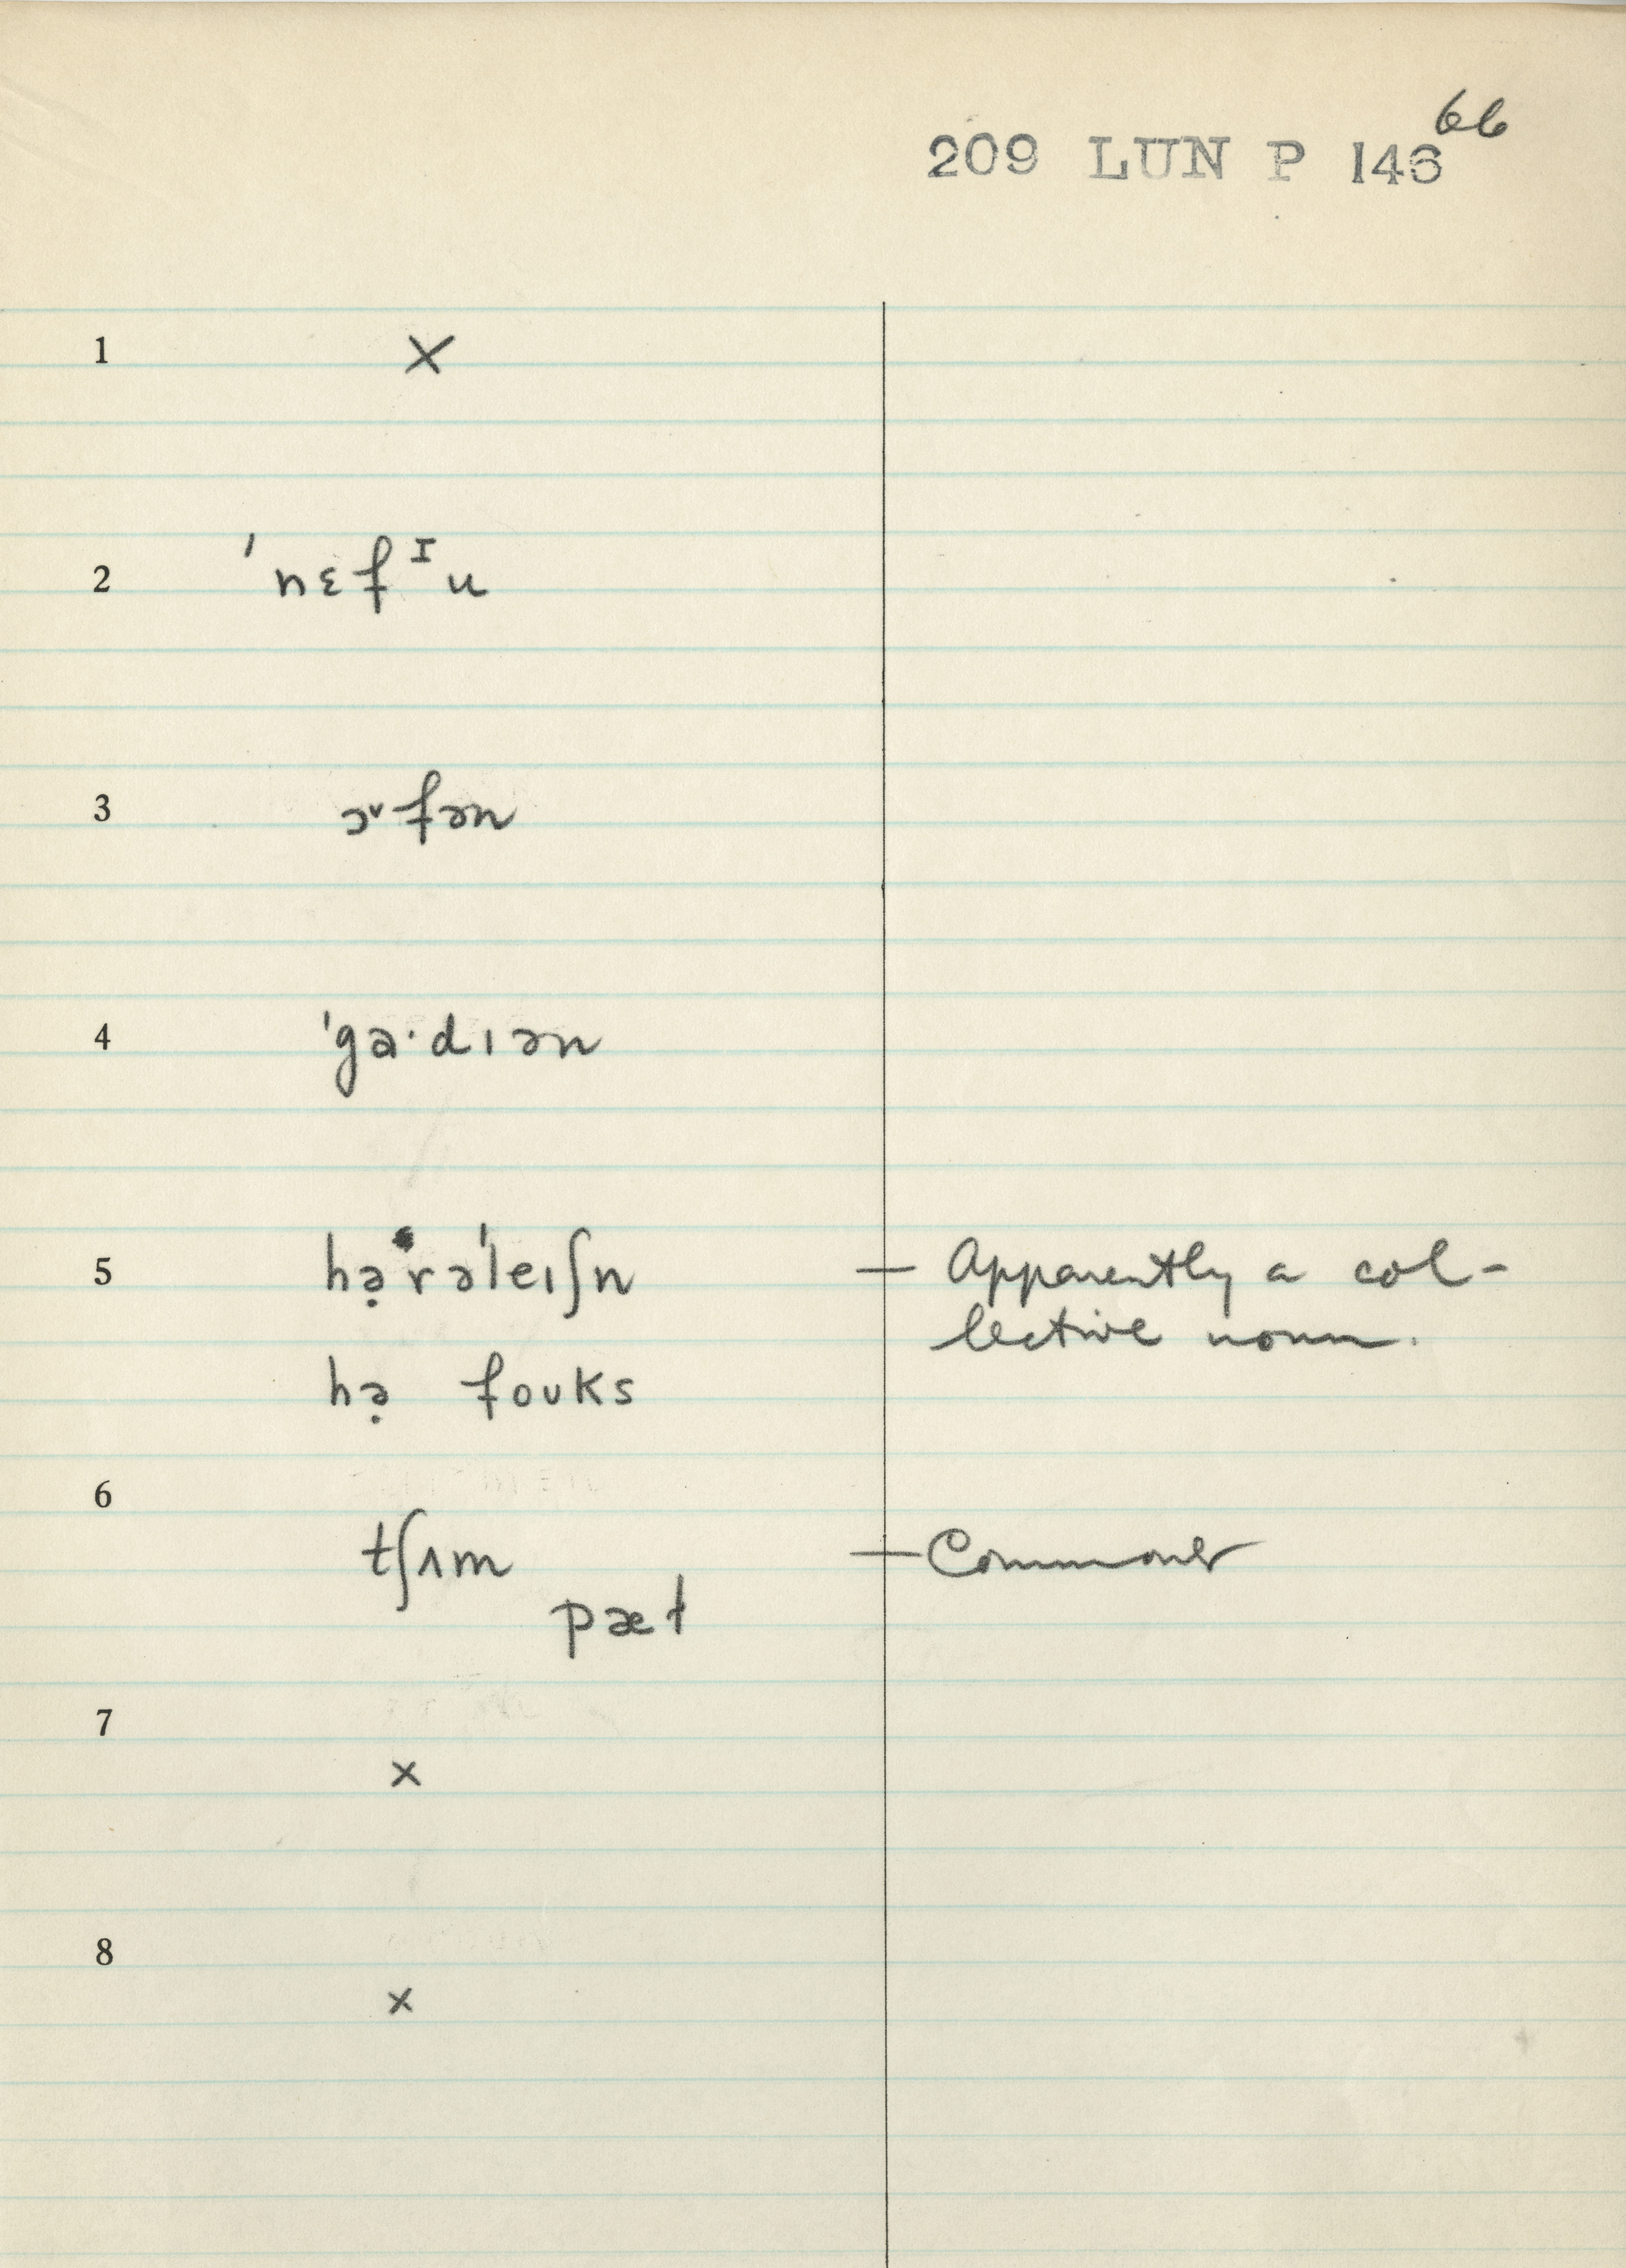 66
209 LUN P 146
1 ×
2 ˈnɛfᴵu
3 ɔ˅fən
4 ˈgɑ·dɪən
5 hə̣rəˈleɪʃn — Apparently a col-
lective noun.
hə̣ foʊks
6
tʃʌm — Commoner
pæt
7
×
8
×